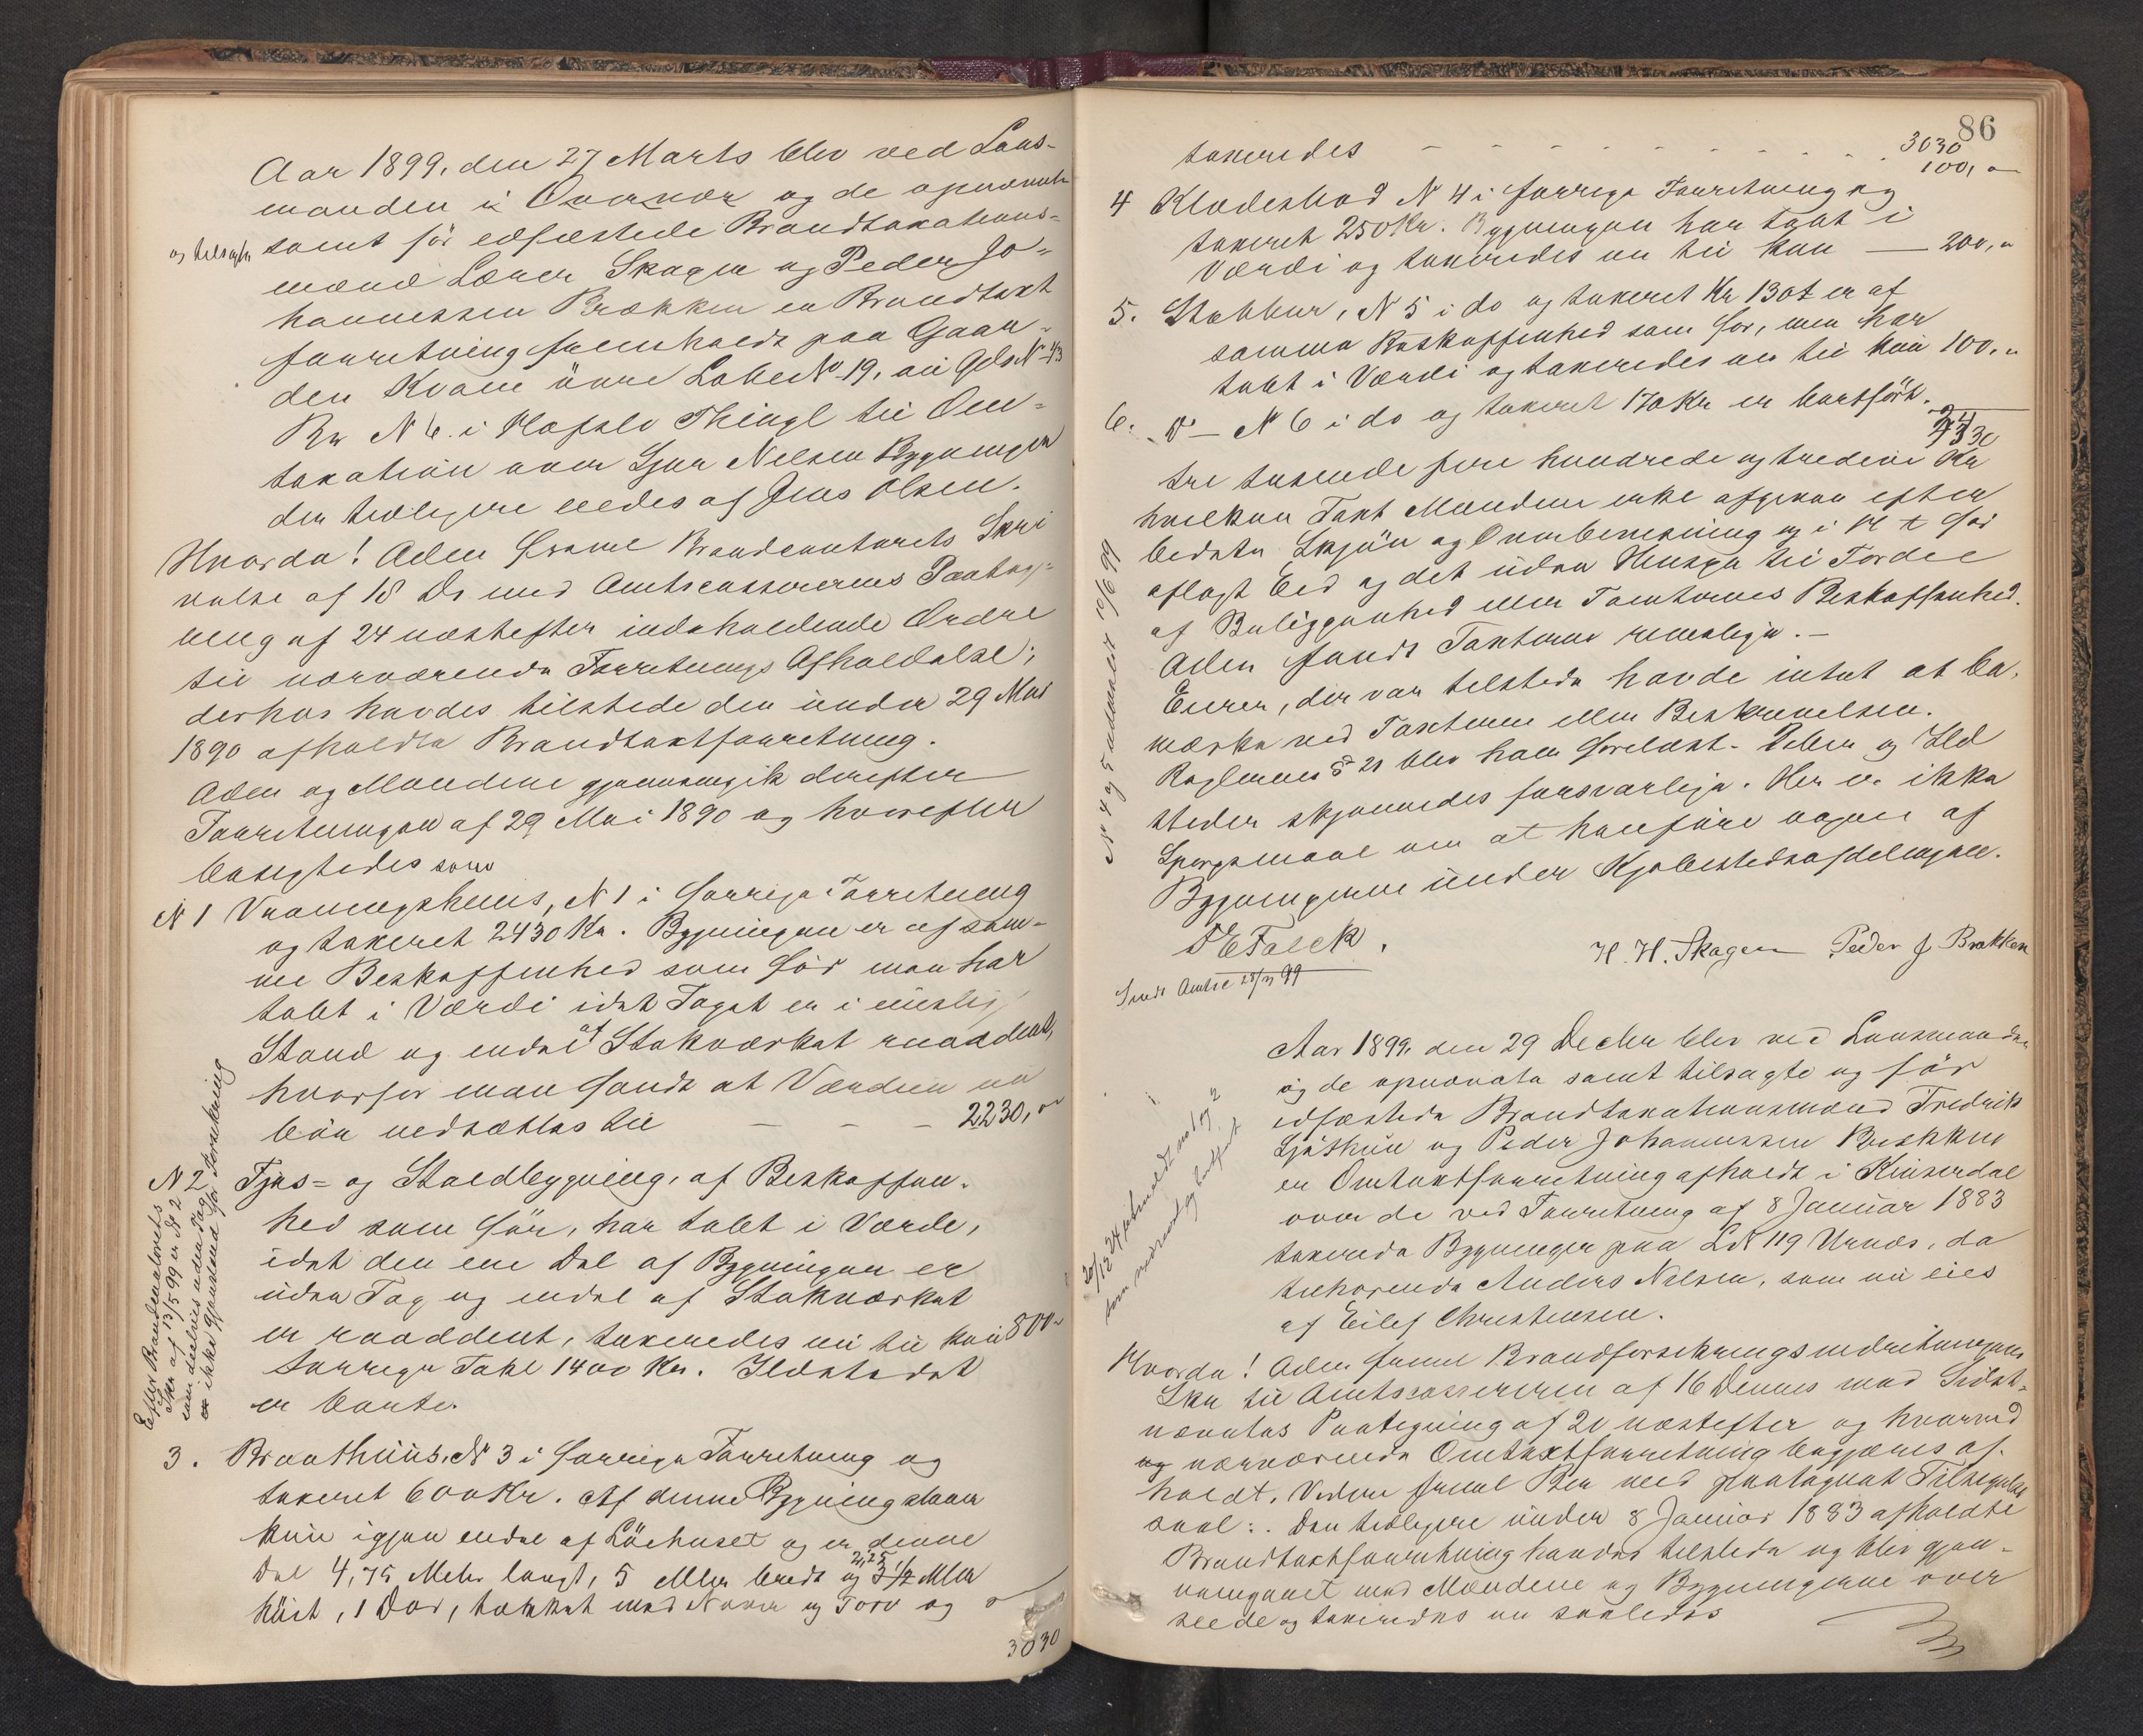 Aar 1899, den 27 Marts blev ved Lens-
manden i Overnær og de opnævnte
og tilsagte
samt før edfæstede Brandtaxations-
mænd Lærer Skagen og Peder Jo-
hannessen Brækken en Brandtaxt
forretning fremholdt paa Gaar-
den Kvam övre Lobe No 19, nu Gds N 43
Br N 6 i Hafslo Thingl til Om-
taxation over Sjur Nilsen Bygninger
der tidligere eiedes af Jens Olsen.
Hvorda! Adm freml Brandcontorets Skri
velse af 18 Ds med Amtscassererens Paateg-
ning af 24 næstefter indeholdende Ordre
til nærværende Forretnings Afholdelse;
derhos havdes tilstede den under 29 Mai
1890 afholdte Brandtaxtforretning.
Adm og Mændene gjennemgik derefter
Forretningen af 29 Mai 1890 og hvorefter
besigtedes som
N 1 Vaaningshuus, N 1 i forrige Forretning
og taxeret 2430 Kr. Bygningen er af sam-
me Beskaffenhed som før men har
tabt i Værdi idet Taget er i mislig
Stand og endel af Stokværket raaddent,
hvorfor man fandt at Værdien nu
bør nedsættes til — — — 2230,00
N 2 Fjøs- og Staldbygning, af Beskaffen-
hed som før, har tabt i Værde,
idet den ene Del af Bygningen er
uden Tag og endel af Stokværket
er raaddent, taxeredes nu til kun 800
forrige Taxt 1400 Kr. Ildstedet
er borte.
Efter Brandcontorets
Skr af 13/5 99 er N 2
som deelvis uden Tag
er ikke gjenstand for Forsikring
3. Brøsthuus, N 3 i forrige Forretning og
taxeret 600 Kr. Af denne Bygning staaer
kun igjen endel af Löehuset og er denne
Del 4,75 Meter langt, 5 Meter bredt og 3 1/2 Meter
2,25
høit, 1 Dør, tækket med Næver og Torv og
3030
86
taxeredes — — — 3030
100,00
4 Kladeshod N 4 i forrige Forretning og
taxeret 250 Kr. Bygningen har tabt i
Værdi og taxeredes nu til kun — 200,00
5. Stabbur, N 5 i do og taxeret Kr 130 er af
samme Beskaffenhed som før, men har
tabt i Værdi og taxeredes nu til kun 100,00
6. D — N 6 i do og taxeret 170 Kr er bortført.
3430
tre tusende fire hundrede og tredive Kr
hvilken Taxt Mændene enke afgivne efter
bedste Skjøn og Overbevisning og i H t før
aflagt Eed og det uden Hensyn til Fordel
af Beliggenhed eller Tomternes Beskaffenhed.
Adm fandt Taxterne rimelige. —
Eieren, der var tilstede havde intet at be-
mærke ved Taxterne eller Beskrivelsen.
Reglernes § 21 blev ham forelæst. Piber og Ild
steder skjønnedes forsvarlige. Her er ikke
Spørgsmaal om at henføre nogen af
Bygningerne under Kjøbstedsafdelingen.
N 4 og 5 udmeldt 10/6 99
DE Falck.
H. H. Skagen Peder J Brækken
Sendt Amtsc 28/3 99
Aar 1899. den 29 Decbr blev ved Lensmanden
og de opnævnte samt tilsagte og før
edfæstede Brandtaxationsmænd Fredrik
Sjøthun og Peder Johannessen Brækken
en Omtaxtforretning afholdt i Kinserdal
over de ved Forretning af 8 Januar 1883
taxerede Bygninger paa LN 119 Urnes, da
tilhørende Anders Nilsen, som nu eies
af Eilef Christensen.
Hvorda! Adm freml Brandforsikringsindretningens
Skr til Amtscassereren af 16 Dennes med Sidst-
nævntes Paategning af 20 næstefter og hvorved
og nærværende Omtaxtforretning begjæres af-
holdt. Videre freml Ben med paategnet Tilsigelse
saal:. Den tidligere under 8 Januar 1883 afholdte
Brandtaxtforretning havdes tilstede og blev gjen-
nemgaaet med Mændene og Bygningerne over
seede og taxeredes nu saaledes